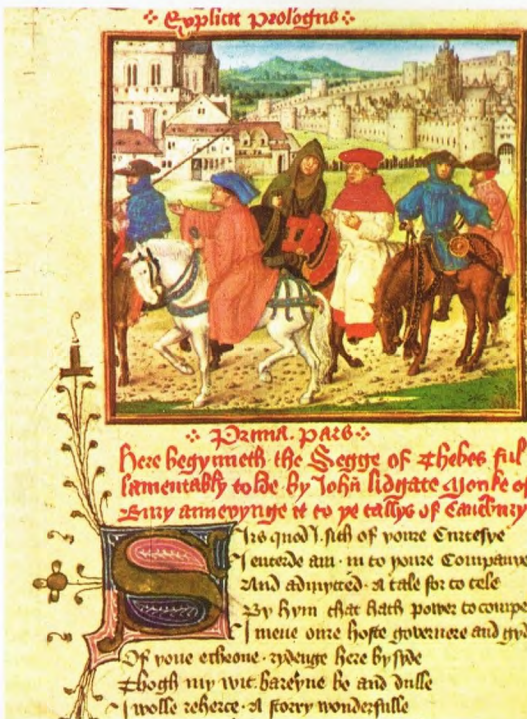 Explicit prologus
Prima. pars
Here begynneth the Segge of Thebes ful
lamentably tolde by Iohn lidgate Monke of
Bury anneꝑynge it to ye tallys of Caunbury
Sirs quod I. sith of youre Curtesye
I enterde am. in to youre Companye
And admytted. a tale for to tele
By hym that hath power to compe
I mene oure hoste governere and gyd
Of youe echeone. rydenge here by syde
Thogh my wit. bareyne be and dulle
I wolle reherce. a storry wonderfulle